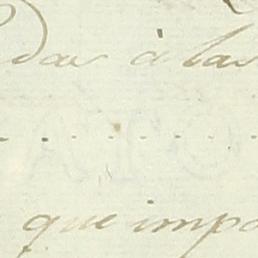 das à las
que impo